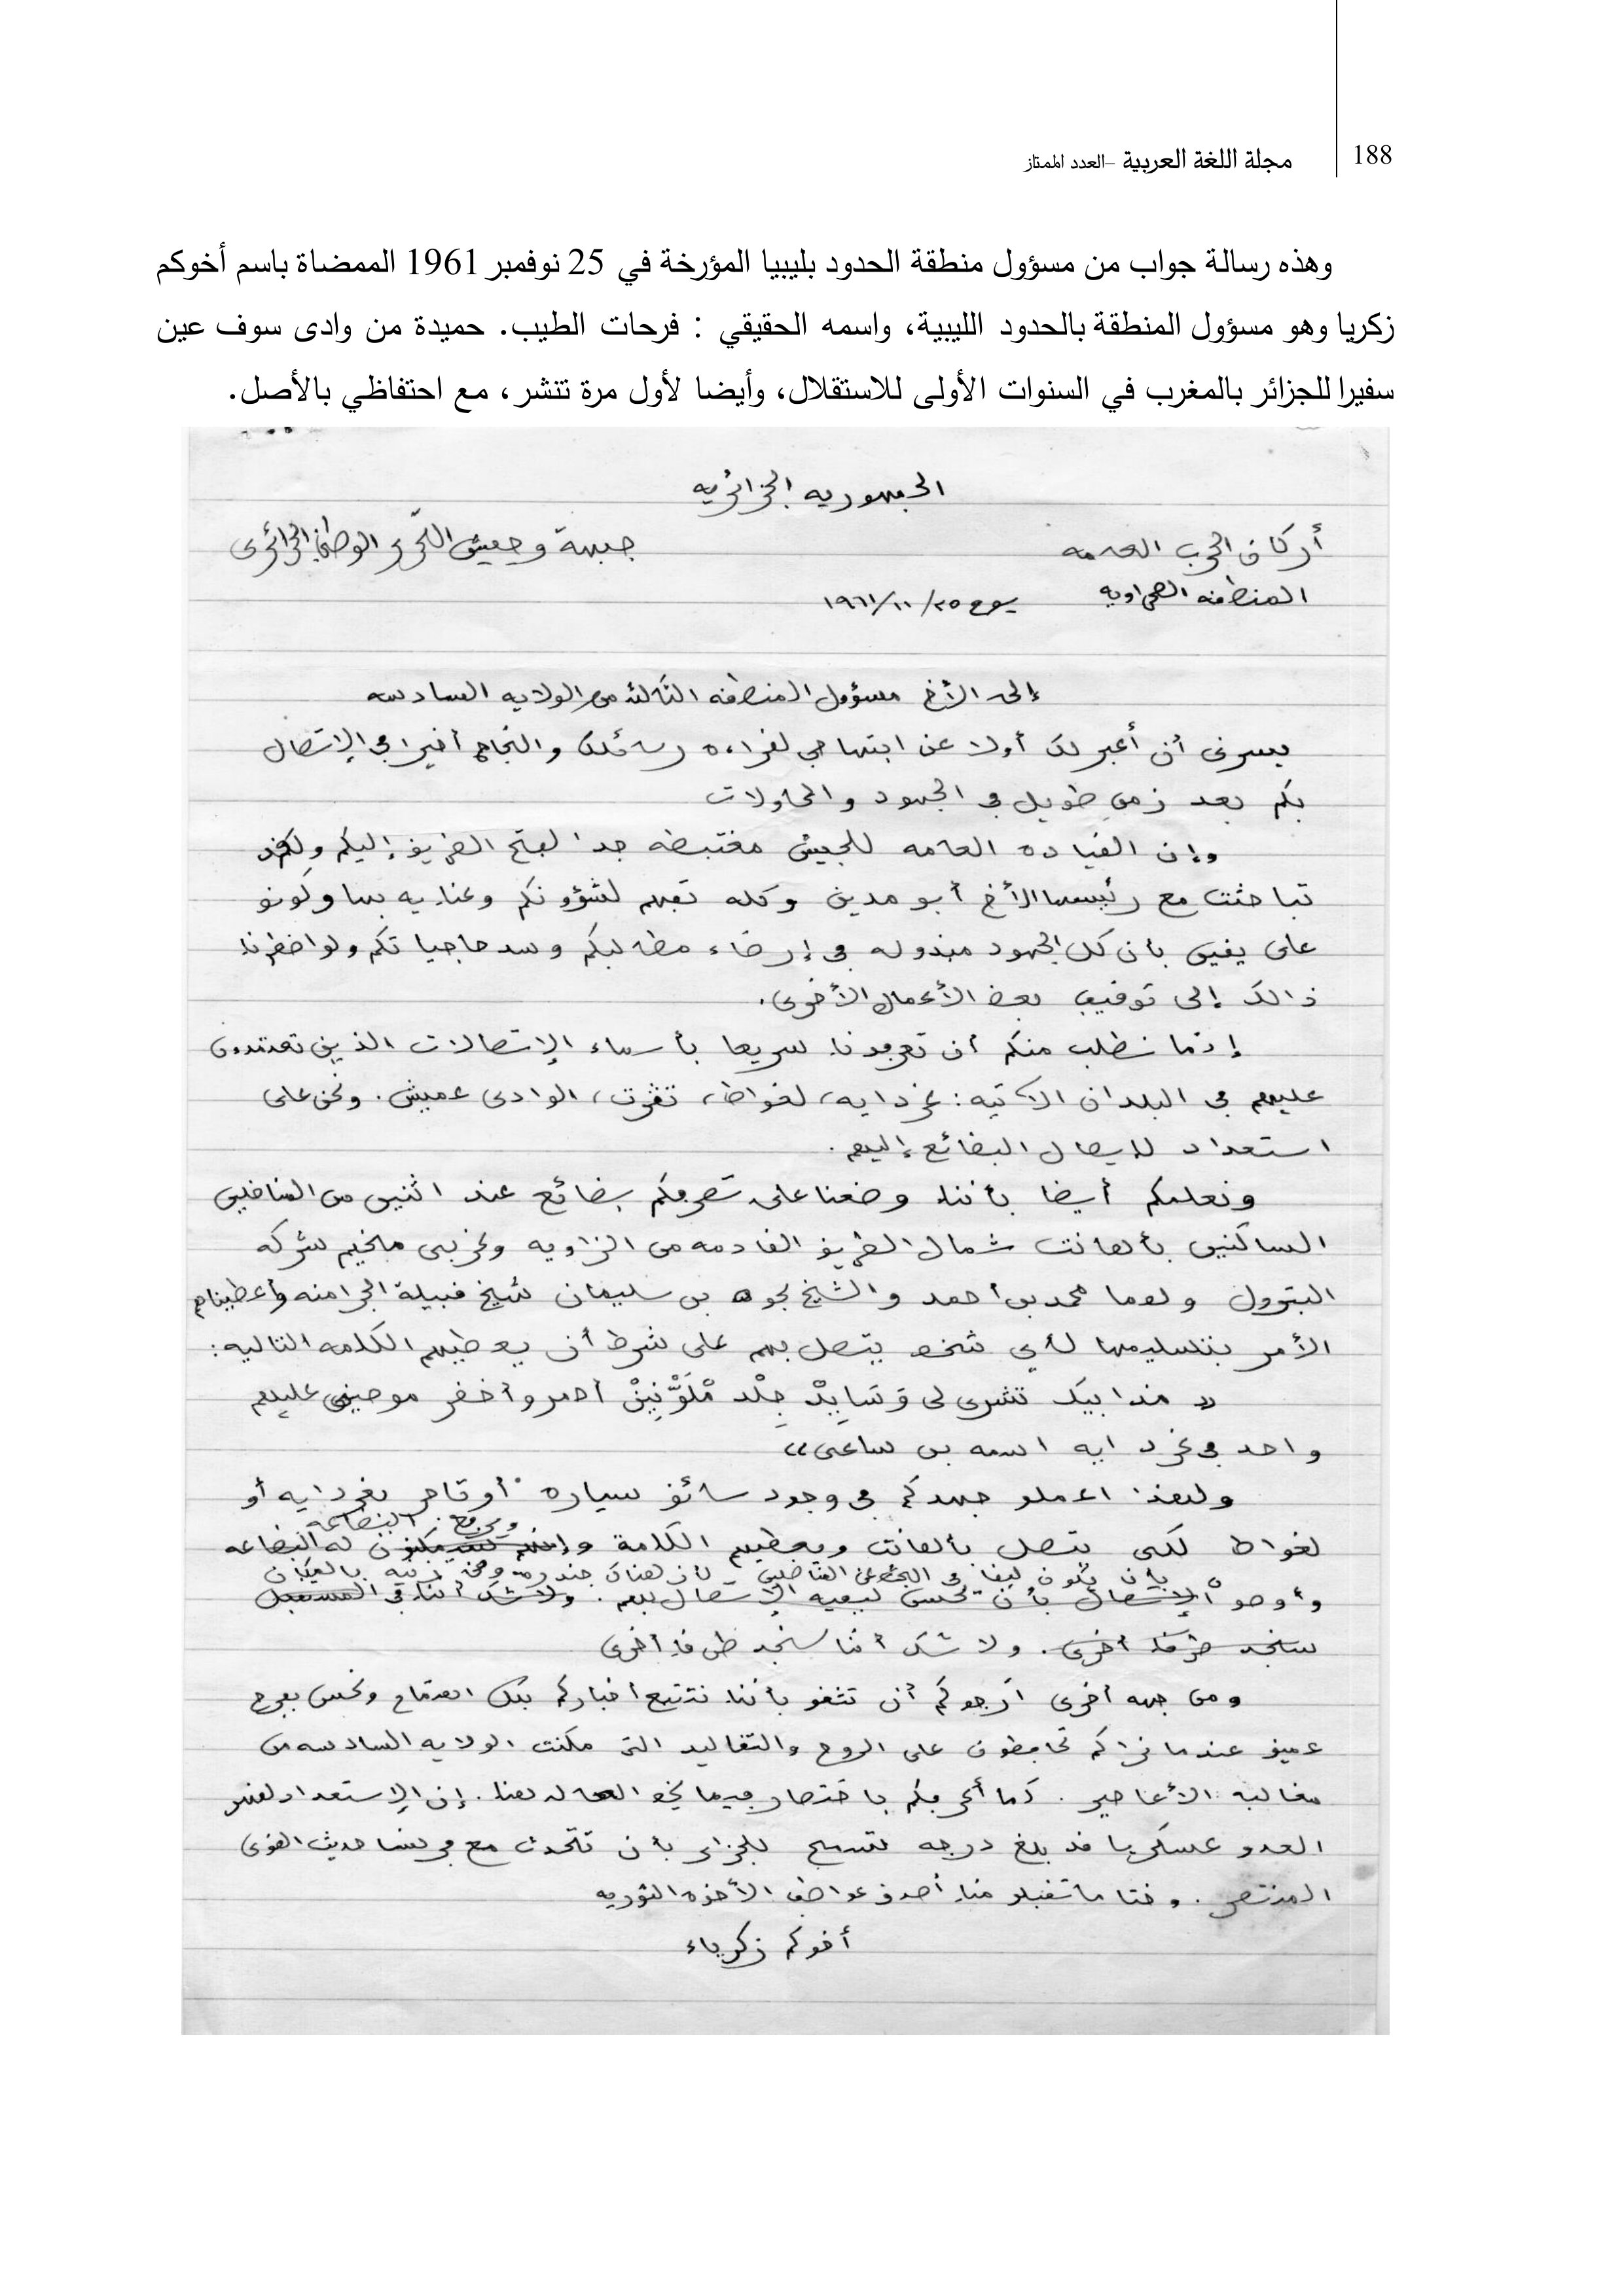 188
مجلة اللغة العربية –العدد الممتاز
وهذه رسالة جواب من مسؤول منطقة الحدود بليبيا المؤرخة في 25 نوفمبر 1961 الممضاة باسم أخوكم
زكريا وهو مسؤول المنطقة بالحدود الليبية، واسمه الحقيقي : فرحات الطيب. حميدة من وادى سوف عين
سفيرا للجزائر بالمغرب في السنوات الأولى للاستقلال، وأيضا لأول مرة تنشر، مع احتفاظي بالأصل.
الجمهوريه الجزائريه
أركان الحرب العامه جبهة وجيش التحرير الوطني الجزائرى
المنطقه الصحراويه يوم ٢٥/١١/١٩٦١
إلى الأخ مسؤول المنطقه الثالثه من الولايه السادسه
يسرنى أن أعبر لك أولا عن ابتهاجي لقراءه رسائلك والنجاح أخيرا فى الإتصال
بكم بعد زمن طويل فى الجهود والمحاولات
وإن القياده العامه للجيش مغتبطه جدا لفتح الطريق إليكم ولقد
تباحثت مع رئيسها الأخ أبو مدين وكله تفهم لشؤونكم وعنايه بها وكونو
على يقين بأن كل الجهود مبذوله فى إرضاء مطالبكم وسد حاجياتكم ولو اضطرنا
ذالك إلى توقيف بعض الأعمال الأخرى.
إنما نطلب منكم أن تعرفونا سريعا بأسماء الإتصالات الذين تعتمدون
عليهم فى البلدان الآتيه: غردايه، لغواط، تقرت، الوادى عميش. ونحن على
استعداد لإيصال البضائع إليهم.
ونعلمكم أيضا بأننا وضعنا على تصرفكم بضائع عند اثنين من المناضلين
الساكنين بأهانت شمال الطريق القادمه من الزاويه وغربى مخيم شركه
البترول وهما محمد بن أحمد والشيخ بن سليمان شيخ قبيلة الجرامنه وأعطيناهم
الأمر بتسليمها لأي شخص يتصل بهم على شرط أن يعطيهم الكلمه التاليه:
« تشرى لى وَسَايِدْ جِلْد مْلَوّْنِينْ أحمر وأخضر موصينى عليهم
واحد فى غردايه اسمه بن ساعى»
ولهذا اعملو جهدكم فى وجود سائق سياره أو تاجر بغردايه أو
ويرفع البضاعه
لغواط لكى يتصل بأهانت ويعطيهم الكلمة له البضاعه
بأن يكون لبقا فى البحث عن المناضلين لأن هناك بالمكان
وأوصو الإتصال بأن تحسن كيفيه الإتصال بهم. ولاشك أننا فى المستقبل
سنجد طرقا أخرى. ولا شك أننا سنجد طرقا أخرى
ومن جهه أخرى أرجوكم أن تثقو بأننا نتتبع أخباركم بكل اهتمام ونحس بفرح
عميق عندما نراكم تحافظون على الروح والتقاليد التى مكنت الولايه السادسه من
مغالبة الأعاصير. كما أعرفكم باختصار فيما يخص الحاله هنا. إن الإستعداد لقهر
العدو عسكريا قد بلغ درجه تسمح للجزائر بأن تتحدث مع فرنسا حديث القوى
المنتصر. وختاما تقبلو منا أصدق عواطف الأخوه الثوريه
أخوكم زكرياء